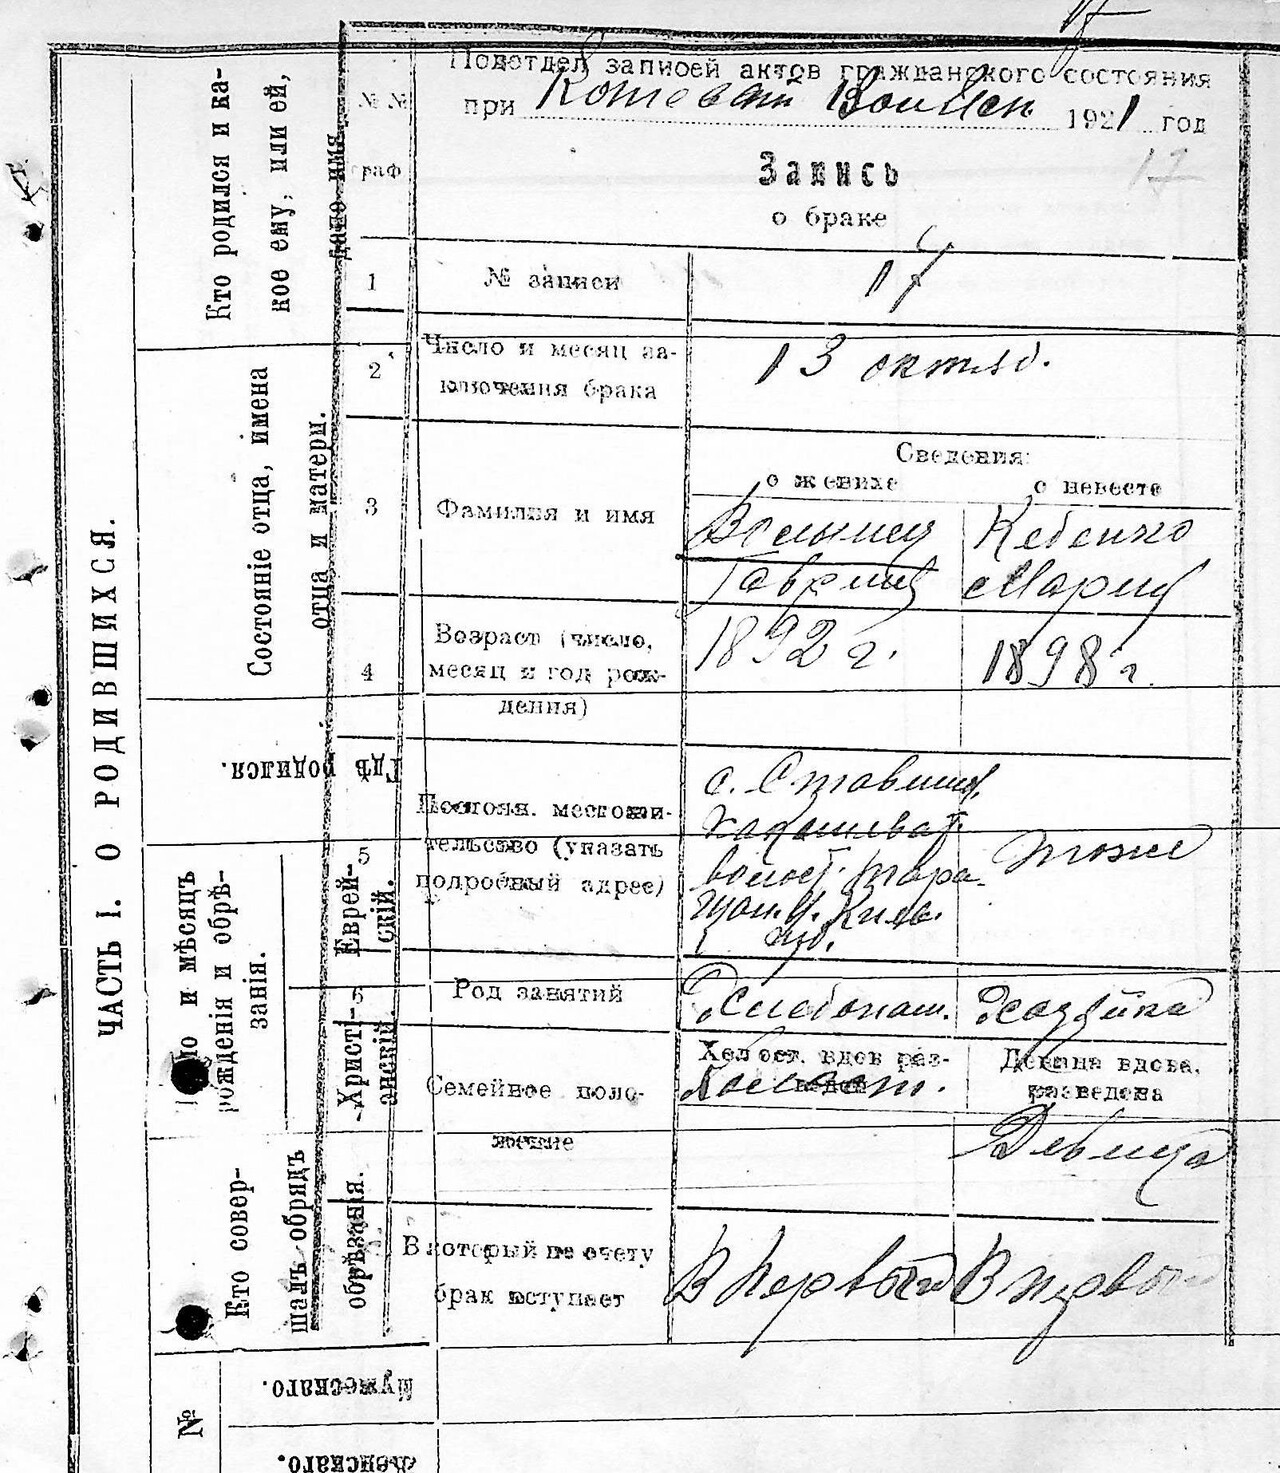 17
Подотдел записей актов гражданского состояния
при Волисп 1921 год
17
№№
граф
Запись
о браке
1
№ записи
17
2
Число и месяц за-
ключения брака
13 октяб.
3
Фамилия и имя
Сведения:
о женихе
о невесте
Волынец
Гавриил
Кебенко
Мария
4
Возраст (число,
месяц и год рож-
дения)
1892 г.
1898 г.
5
Постоян. местожи-
тельство (указать
подробный адрес)
с. Ставищ.
волост. Тара-
щан. у. Киев.
губ.
тоже
6
Род занятий
Хлебопаш.
Хозяйка
Семейное поло-
жение
Холост. вдов раз-
веден
Холост.
Девица вдова.
разведена
Девица
В который по счету
брак вступает
В первый
В первый
ЧАСТЬ I. О РОДИВШИХСЯ.
Кто родился и ка-
кое ему, или ей,
дано имя
Состояніе отца, имена
отца и матери.
Гдѣ родился.
и мѣсяцъ
рожденія и обрѣ-
занія.
Еврей-
скій.
Христі-
анскій.
Кто совер-
шалъ обрядъ
обрѣзанія.
№
Мужескаго.
Женскаго.